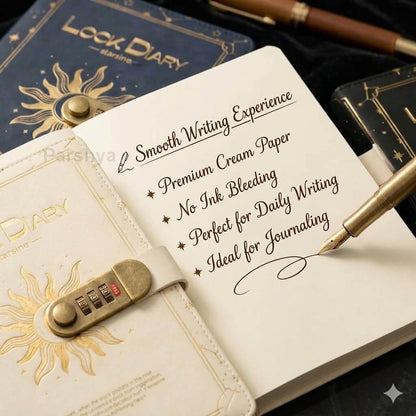 LOCK DIARY
starsine
Smooth Writing Experience
Premium Cream Paper
No Ink Bleeding
Perfect for Daily Writing
Ideal for Journaling
Parshya
LOCK DIARY
starsine